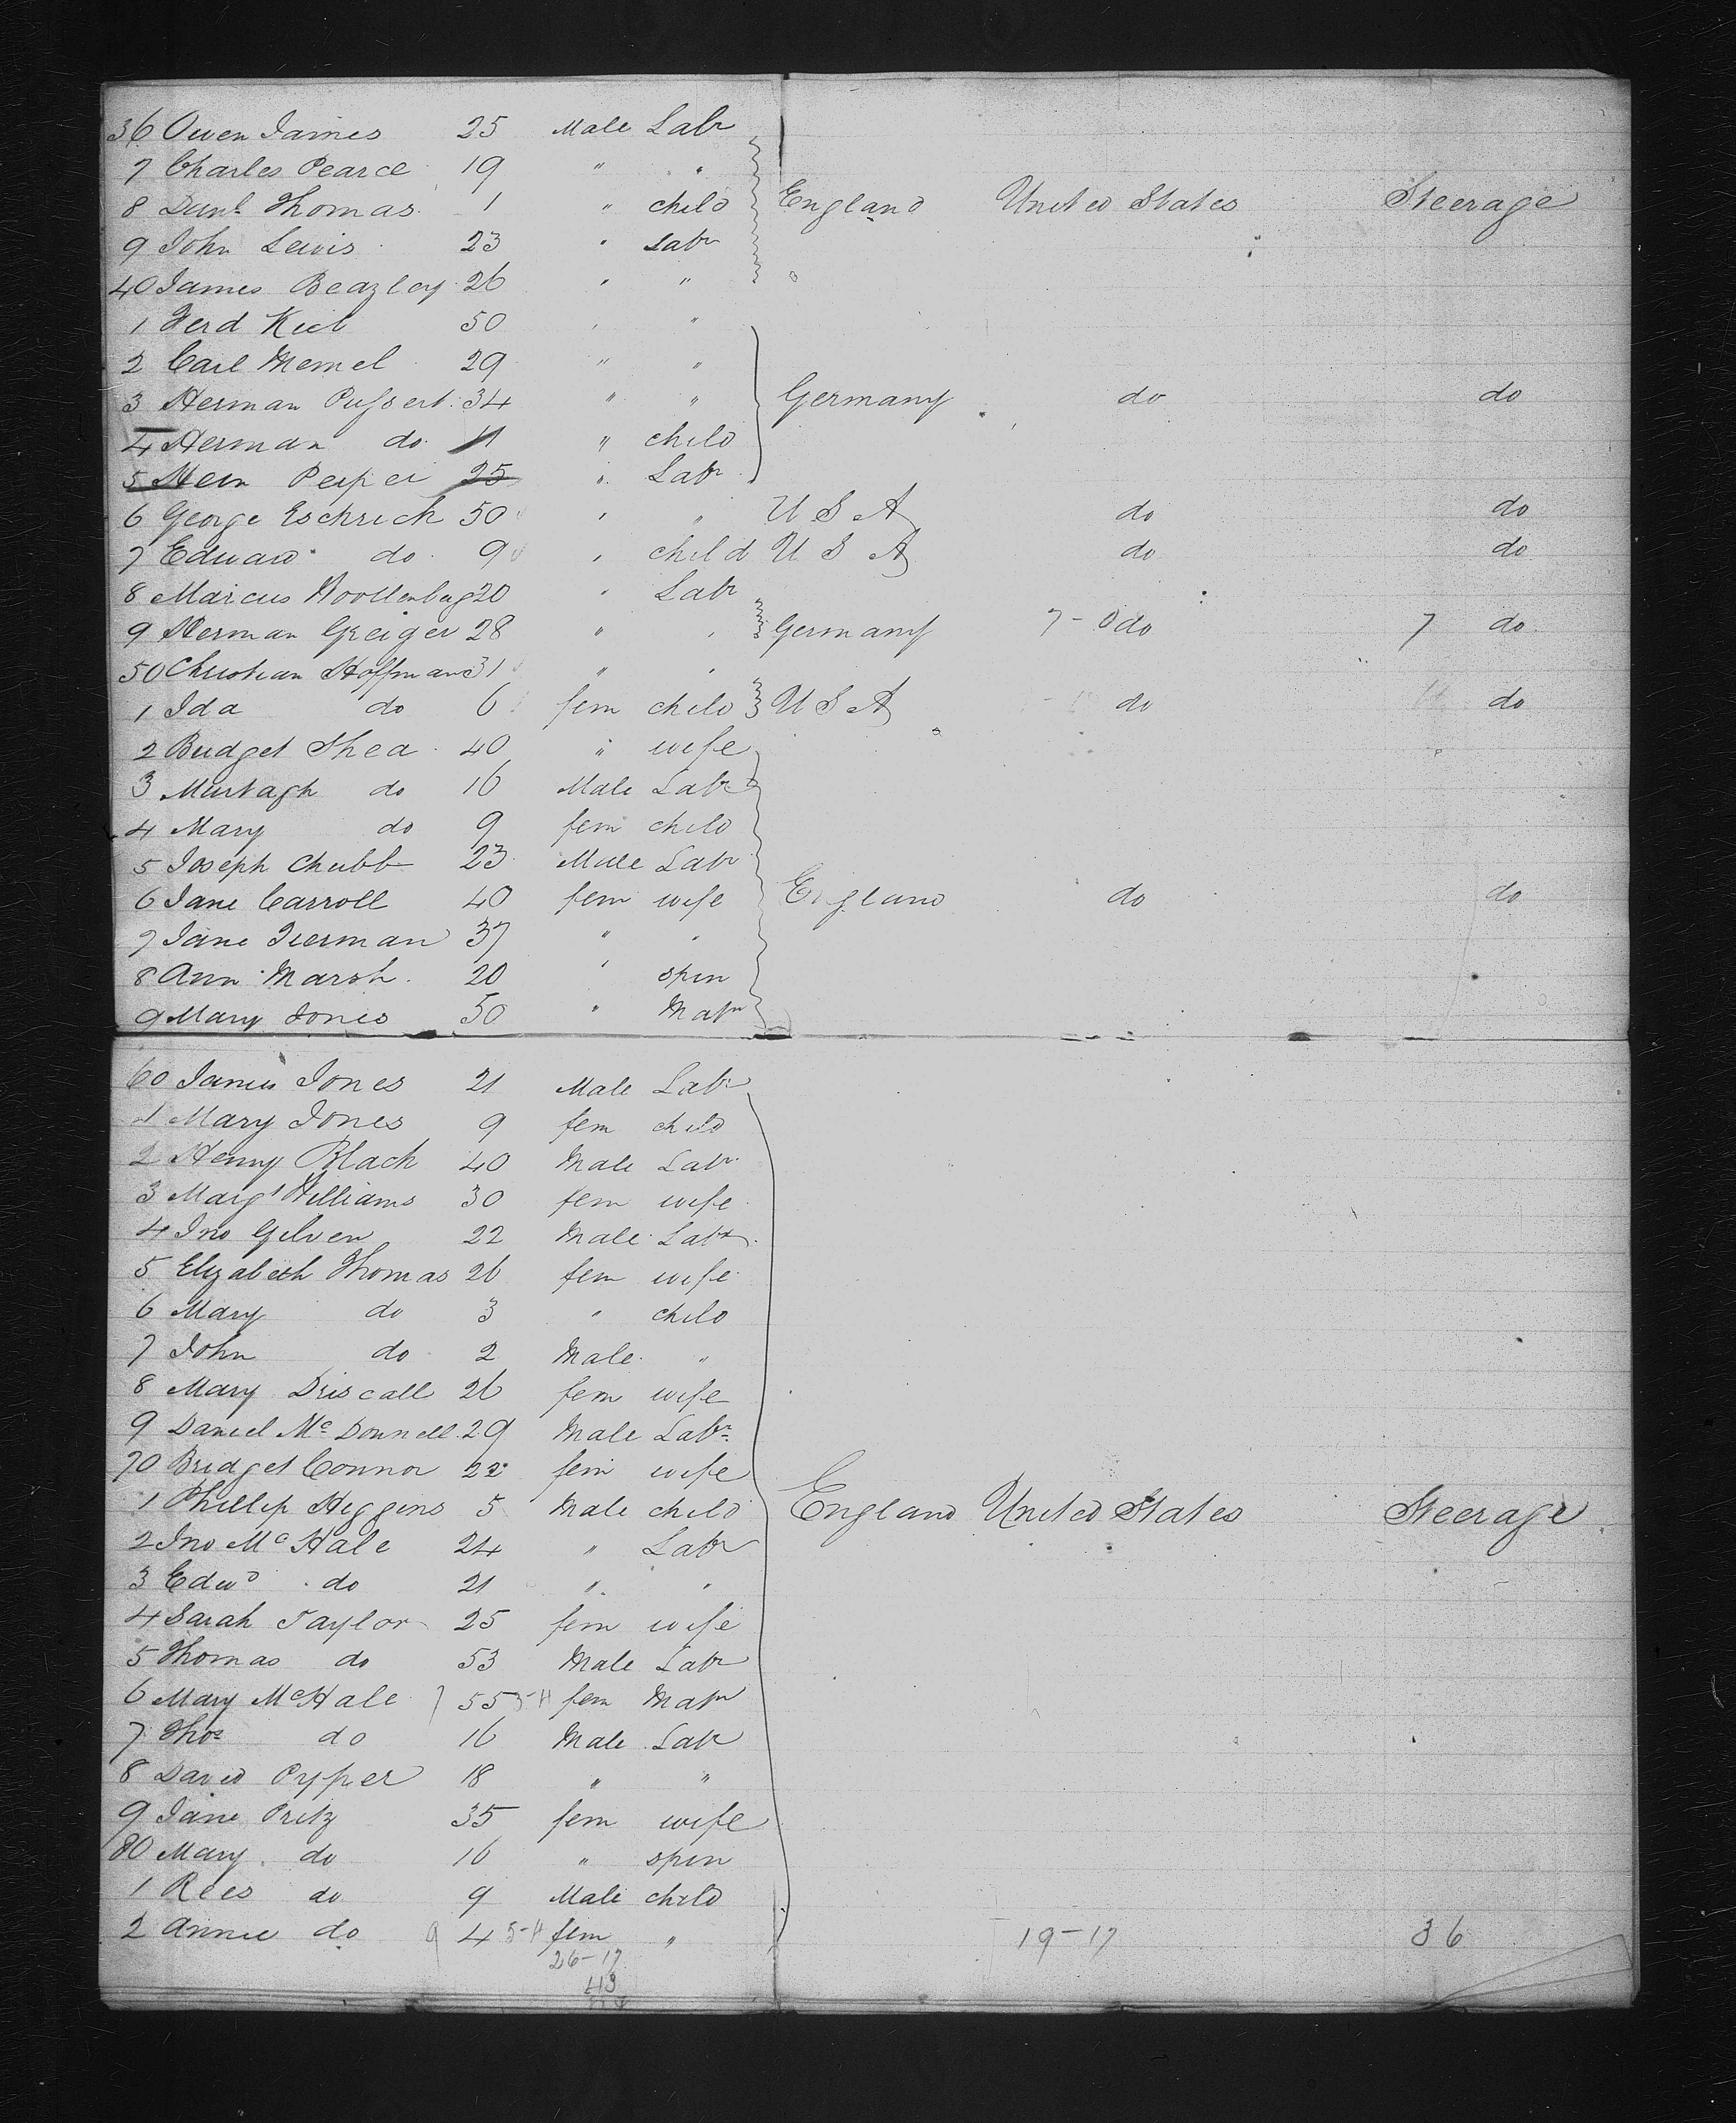 36 Owen James 25 Male Labr
7 Charles Pearce 19 " "
8 Danl Thomas 1 " child England United States Steerage
9 John Lewis 23 " Labr
40 James Beazley 26 " "
1 Ferd 50 " "
2 Carl Memel 29 " "
3 Herman 34 " " Germany do do
4 Herman do 11 " child
5 25 " Labr
6 George Eschrich 50 " " U S A do do
7 Edward do 9 " child U S A do do
8 Marcus 20 " Labr
9 Herman Greiger 28 " " Germany 7-0 do 7 do
50 Christian Hoffman 31 " "
1 Ida do 6 fem child U S A do do
2 Bridget Shea 40 " wife
3 Murtagh do 16 Male Labr
4 Mary do 9 fem child
5 Joseph Chubb 23 Male Labr
6 Jane Carroll 40 fem wife England do do
7 Jane 37 " "
8 Ann Marsh 20 " spin
9 Mary Jones 50 " Matn
60 James Jones 21 Male Labr
1 Mary Jones 9 fem child
2 Henry Black 40 Male Labr
3 Margt Williams 30 fem wife
4 Jno Gilven 22 Male Labr
5 Elizabeth Thomas 26 fem wife
6 Mary do 3 " child
7 John do 2 Male "
8 Mary Driscall 26 fem wife
9 Daniel McDonnell 29 Male Labr
70 Bridget Connor 22 fem wife
1 Phillip Higgins 5 Male child England United States Steerage
2 Jno McHale 24 " Labr
3 Edwd do 21 " "
4 Sarah Taylor 25 fem wife
5 Thomas do 53 Male Labr
6 Mary McHale 55 fem Matn
7 Thos do 16 Male Labr
8 David Pyper 18 " "
9 Jane Pritz 35 fem wife
80 Mary do 16 " spin
1 Rees do 9 Male child
2 Annie do 4 fem " 19-17 36
26-17
43